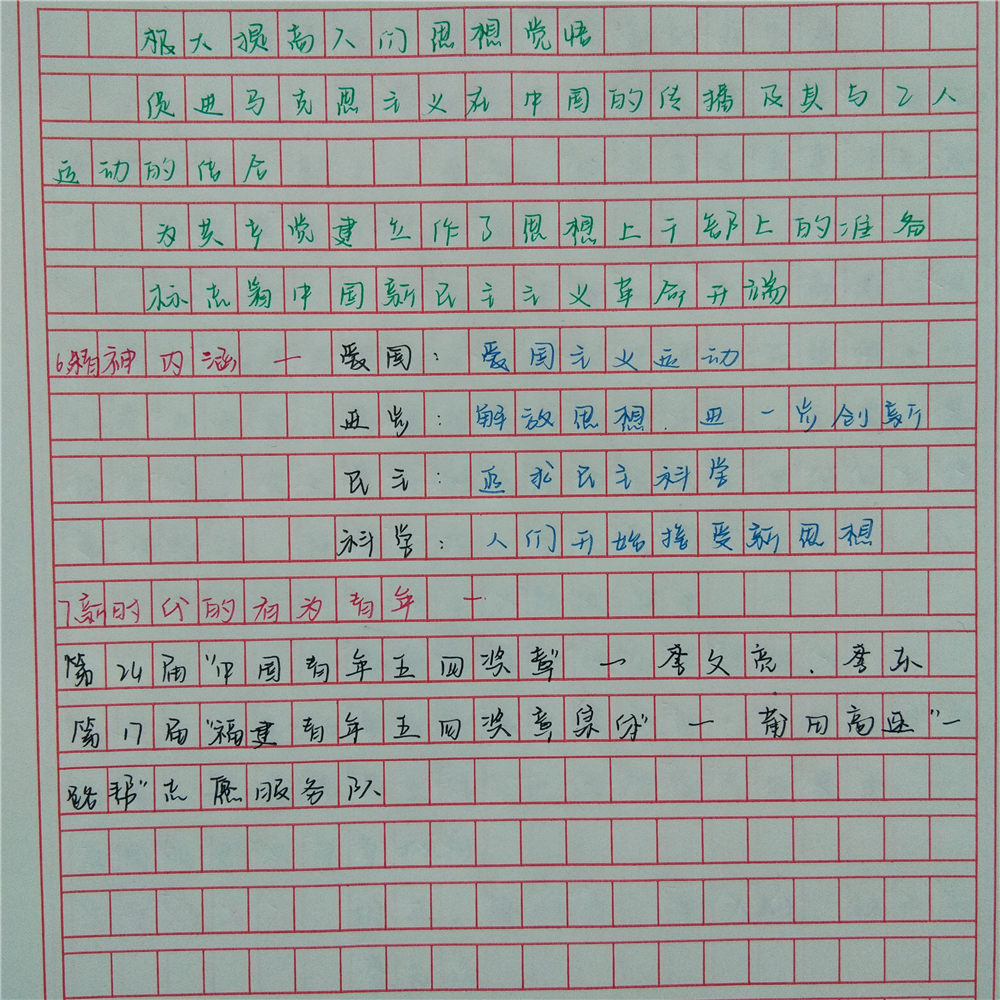 极大提高人们思想觉悟
促进马克思主义在中国的传播及其与工人
运动的结合
为共产党建立作了思想上干部上的准备
标志着中国新民主主义革命开端
6精神内涵一爱国：爱国主义运动
进步：解放思想．进一步创新
民主：追求民主科学
科学：人们开始接受新思想
7新时代的有为青年一
第24届"中国青年五四奖章"一李文亮．李东
第17届"福建青年五四奖章集体"一莆田高速"一
路帮"志愿服务队